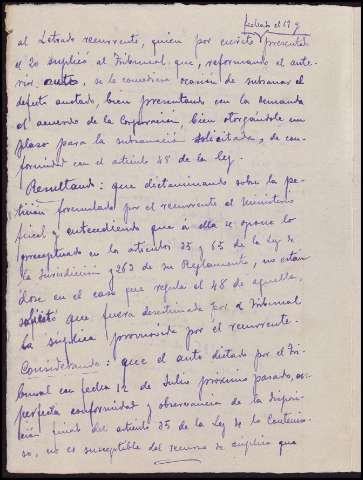 fechado el 17 y
al Letrado recurrente, quien por escrito presentado
el 20 suplicó al Tribunal que, reformando el ante-
rior auto, se le concediera ocasión de subsanar el
defecto anotado, bien presentando con la demanda
el acuerdo de la Corporación, bien otorgándole un
plazo para la subsanación solicitada, de con-
formidad con el artículo 48 de la ley.
Resultando: que dictaminando sobre la pe-
tición formulada por el recurrente el Ministerio
fiscal y entendiendo que a ella se opone lo
preceptuado en los artículos 35 y 65 de la Ley de
la Jurisdicción y 263 de su Reglamento, no están
dose en el caso que regula el 48 de aquella,
solicitó que fuera desestimada por el Tribunal
la súplica promovida por el recurrente.
Considerando: que el auto dictado por el Tri-
bunal con fecha 12 de Julio próximo pasado, en
perfecta conformidad y observancia de la dispo-
sición final del artículo 35 de la Ley de lo Contencio-
so, no es susceptible del recurso de súplica que